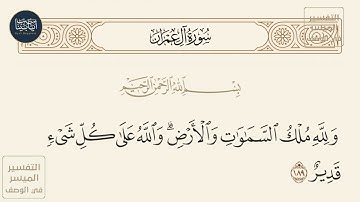 سُورَةُ آلِ عِمْرَان
بِسْمِ اللَّهِ الرَّحْمَٰنِ الرَّحِيمِ
وَلِلَّهِ مُلْكُ السَّمَٰوَٰتِ وَالْأَرْضِ ۗ وَاللَّهُ عَلَىٰ كُلِّ شَىْءٍ
قَدِيرٌ ١٨٩
التفسير
الميسر
في الوصف
التفسير
الميسر
في الوصف